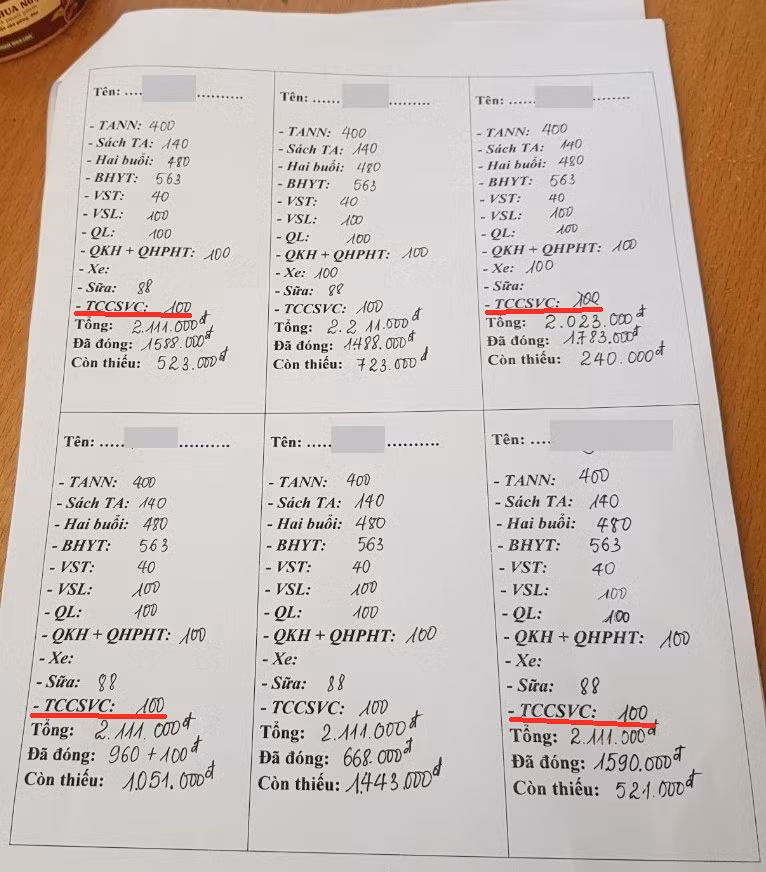 Tên: .... ..........
- TANN: 400
- Sách TA: 140
- Hai buổi: 480
- BHYT: 563
- VST: 40
- VSL: 100
- QL: 100
- QKH + QHPHT: 100
- Xe:
- Sữa: 88
- TCCSVC: 100
Tổng: 2.111.000đ
Đã đóng: 1588.000đ
Còn thiếu: 523.000đ
Tên: ...... .........
- TANN: 400
- Sách TA: 140
- Hai buổi: 480
- BHYT: 563
- VST: 40
- VSL: 100
- QL: 100
- QKH + QHPHT: 100
- Xe: 100
- Sữa: 88
- TCCSVC: 100
Tổng: 2.211.000đ
Đã đóng: 1488.000đ
Còn thiếu: 723.000đ
Tên: ...... ........
- TANN: 400
- Sách TA: 140
- Hai buổi: 480
- BHYT: 563
- VST: 40
- VSL: 100
- QL: 100
- QKH + QHPHT: 100
- Xe: 100
- Sữa:
- TCCSVC: 100
Tổng: 2.023.000đ
Đã đóng: 1783.000đ
Còn thiếu: 240.000đ
Tên: ..... ..........
- TANN: 400
- Sách TA: 140
- Hai buổi: 480
- BHYT: 563
- VST: 40
- VSL: 100
- QL: 100
- QKH + QHPHT: 100
- Xe:
- Sữa: 88
- TCCSVC: 100
Tổng: 2.111.000đ
Đã đóng: 960 + 100đ
Còn thiếu: 1.051.000đ
Tên: ..... ..........
- TANN: 400
- Sách TA: 140
- Hai buổi: 480
- BHYT: 563
- VST: 40
- VSL: 100
- QL: 100
- QKH + QHPHT: 100
- Xe:
- Sữa: 88
- TCCSVC: 100
Tổng: 2.111.000đ
Đã đóng: 668.000đ
Còn thiếu: 1.443.000đ
Tên: ....
- TANN: 400
- Sách TA: 140
- Hai buổi: 480
- BHYT: 563
- VST: 40
- VSL: 100
- QL: 100
- QKH + QHPHT: 100
- Xe:
- Sữa: 88
- TCCSVC: 100
Tổng: 2.111.000đ
Đã đóng: 1590.000đ
Còn thiếu: 521.000đ